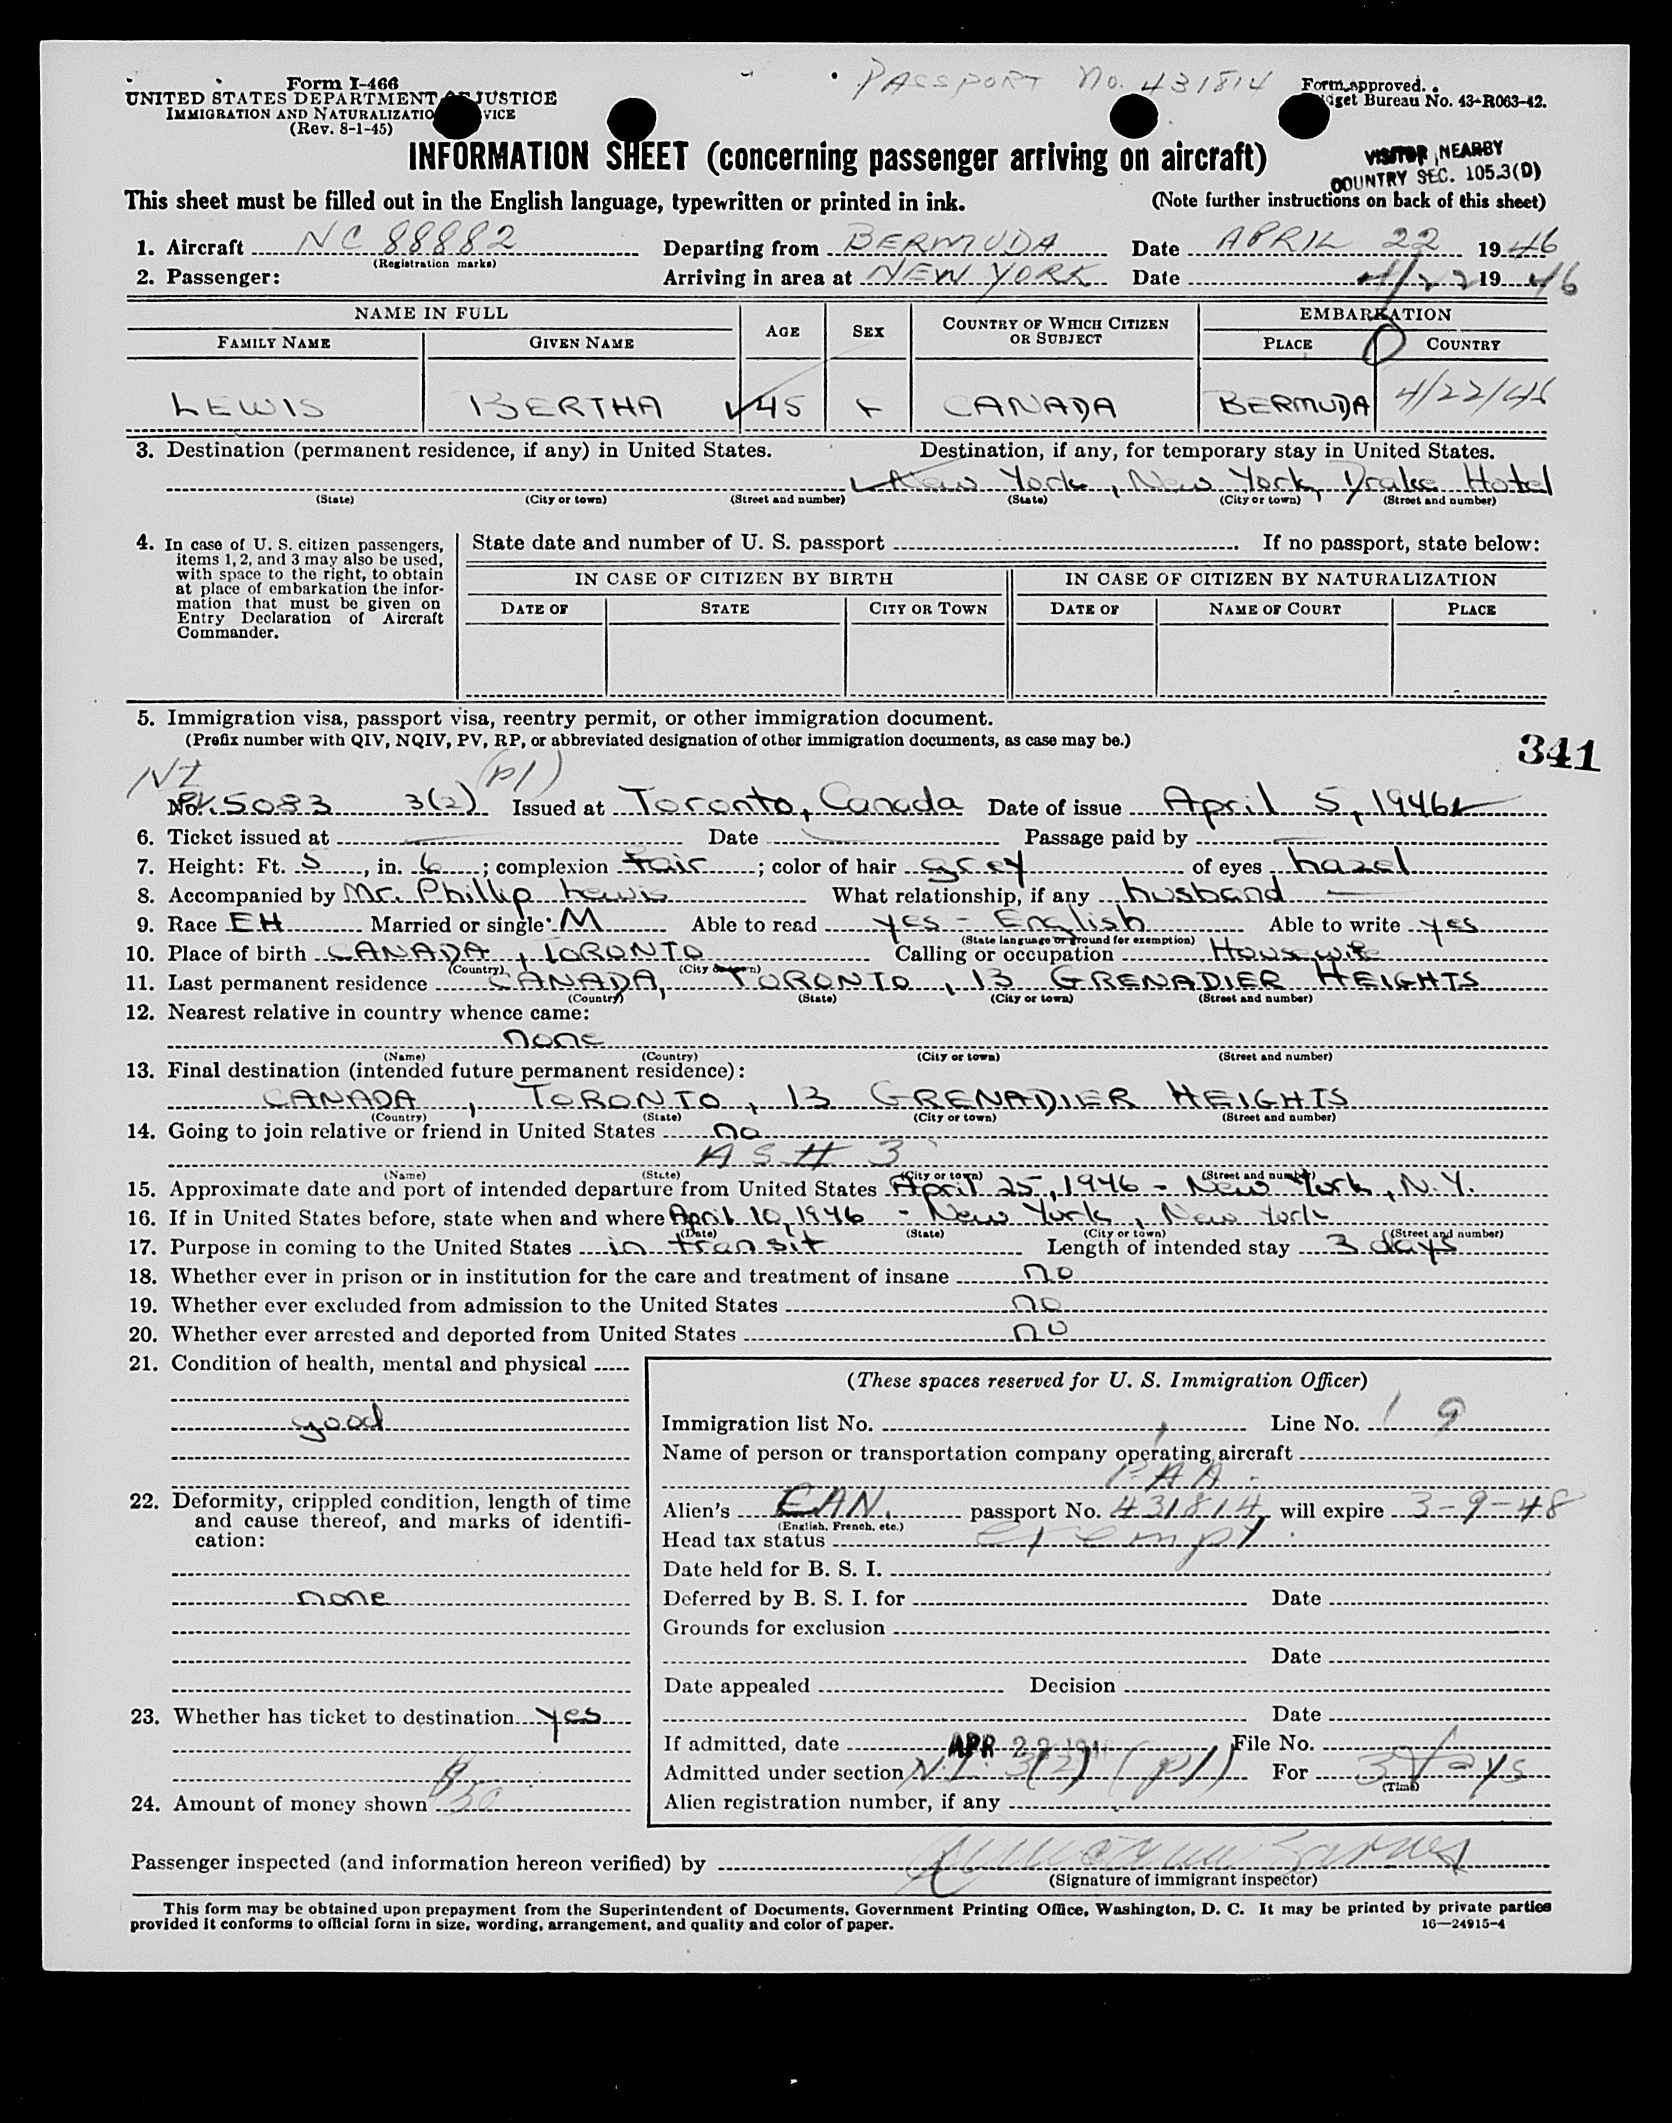 PASSPORT No. 431814
Form I-466
UNITED STATES DEPARTMENT OF JUSTICE
IMMIGRATION AND NATURALIZATIO VICE
(Rev. 8-1-45)
Form approved.
dget Bureau No. 43-R063-42.
INFORMATION SHEET (concerning passenger arriving on aircraft)
VISITOR NEARBY
COUNTRY SEC. 105.3(D)
This sheet must be filled out in the English language, typewritten or printed in ink. (Note further instructions on back of this sheet)
1. Aircraft NC 88882 Departing from BERMUDA Date APRIL 22 1946
(Registration marks)
2. Passenger: Arriving in area at NEW YORK Date 4/22 1946
NAME IN FULL AGE SEX COUNTRY OF WHICH CITIZEN OR SUBJECT EMBARKATION
FAMILY NAME GIVEN NAME PLACE COUNTRY
LEWIS BERTHA 45 F CANADA BERMUDA 4/22/46
3. Destination (permanent residence, if any) in United States. Destination, if any, for temporary stay in United States.
New York, New York, Drake Hotel
(State) (City or town) (Street and number) (State) (City or town) (Street and number)
4. In case of U. S. citizen passengers, items 1, 2, and 3 may also be used, with space to the right, to obtain at place of embarkation the information that must be given on Entry Declaration of Aircraft Commander.
State date and number of U. S. passport . If no passport, state below:
IN CASE OF CITIZEN BY BIRTH IN CASE OF CITIZEN BY NATURALIZATION
DATE OF STATE CITY OR TOWN DATE OF NAME OF COURT PLACE
5. Immigration visa, passport visa, reentry permit, or other immigration document.
(Prefix number with QIV, NQIV, PV, RP, or abbreviated designation of other immigration documents, as case may be.)
341
NI (p1)
No. PV. 5083 3(2) Issued at Toronto, Canada Date of issue April 5, 1946
6. Ticket issued at Date Passage paid by
7. Height: Ft. 5, in. 6; complexion fair; color of hair grey of eyes hazel
8. Accompanied by Mr. Phillip Lewis What relationship, if any husband
9. Race EH Married or single M Able to read yes - English Able to write yes
(State language or ground for exemption)
10. Place of birth CANADA, TORONTO Calling or occupation Housewife
(Country) (City or town)
11. Last permanent residence CANADA, TORONTO, 13 GRENADIER HEIGHTS
(Country) (State) (City or town) (Street and number)
12. Nearest relative in country whence came:
none
(Name) (Country) (City or town) (Street and number)
13. Final destination (intended future permanent residence):
CANADA, TORONTO, 13 GRENADIER HEIGHTS
(Country) (State) (City or town) (Street and number)
14. Going to join relative or friend in United States no
AS # 3
(Name) (State) (City or town) (Street and number)
15. Approximate date and port of intended departure from United States April 25, 1946 - New York, N.Y.
16. If in United States before, state when and where April 10, 1946 - New York, New York
(Date) (State) (City or town) (Street and number)
17. Purpose in coming to the United States in transit Length of intended stay 3 days
18. Whether ever in prison or in institution for the care and treatment of insane no
19. Whether ever excluded from admission to the United States no
20. Whether ever arrested and deported from United States no
21. Condition of health, mental and physical
good
22. Deformity, crippled condition, length of time and cause thereof, and marks of identification:
none
23. Whether has ticket to destination yes
24. Amount of money shown $50
(These spaces reserved for U. S. Immigration Officer)
Immigration list No. 1 Line No. 19
Name of person or transportation company operating aircraft
PAA.
Alien's CAN. passport No. 431814, will expire 3-9-48
(English, French, etc.)
Head tax status exempt
Date held for B. S. I.
Deferred by B. S. I. for Date
Grounds for exclusion
Date
Date appealed Decision
Date
If admitted, date APR 22 194 File No.
Admitted under section N.I. 3(2) (p1) For 3 days
(Time)
Alien registration number, if any
Passenger inspected (and information hereon verified) by
(Signature of immigrant inspector)
This form may be obtained upon prepayment from the Superintendent of Documents, Government Printing Office, Washington, D. C. It may be printed by private parties
provided it conforms to official form in size, wording, arrangement, and quality and color of paper. 16—24915-4